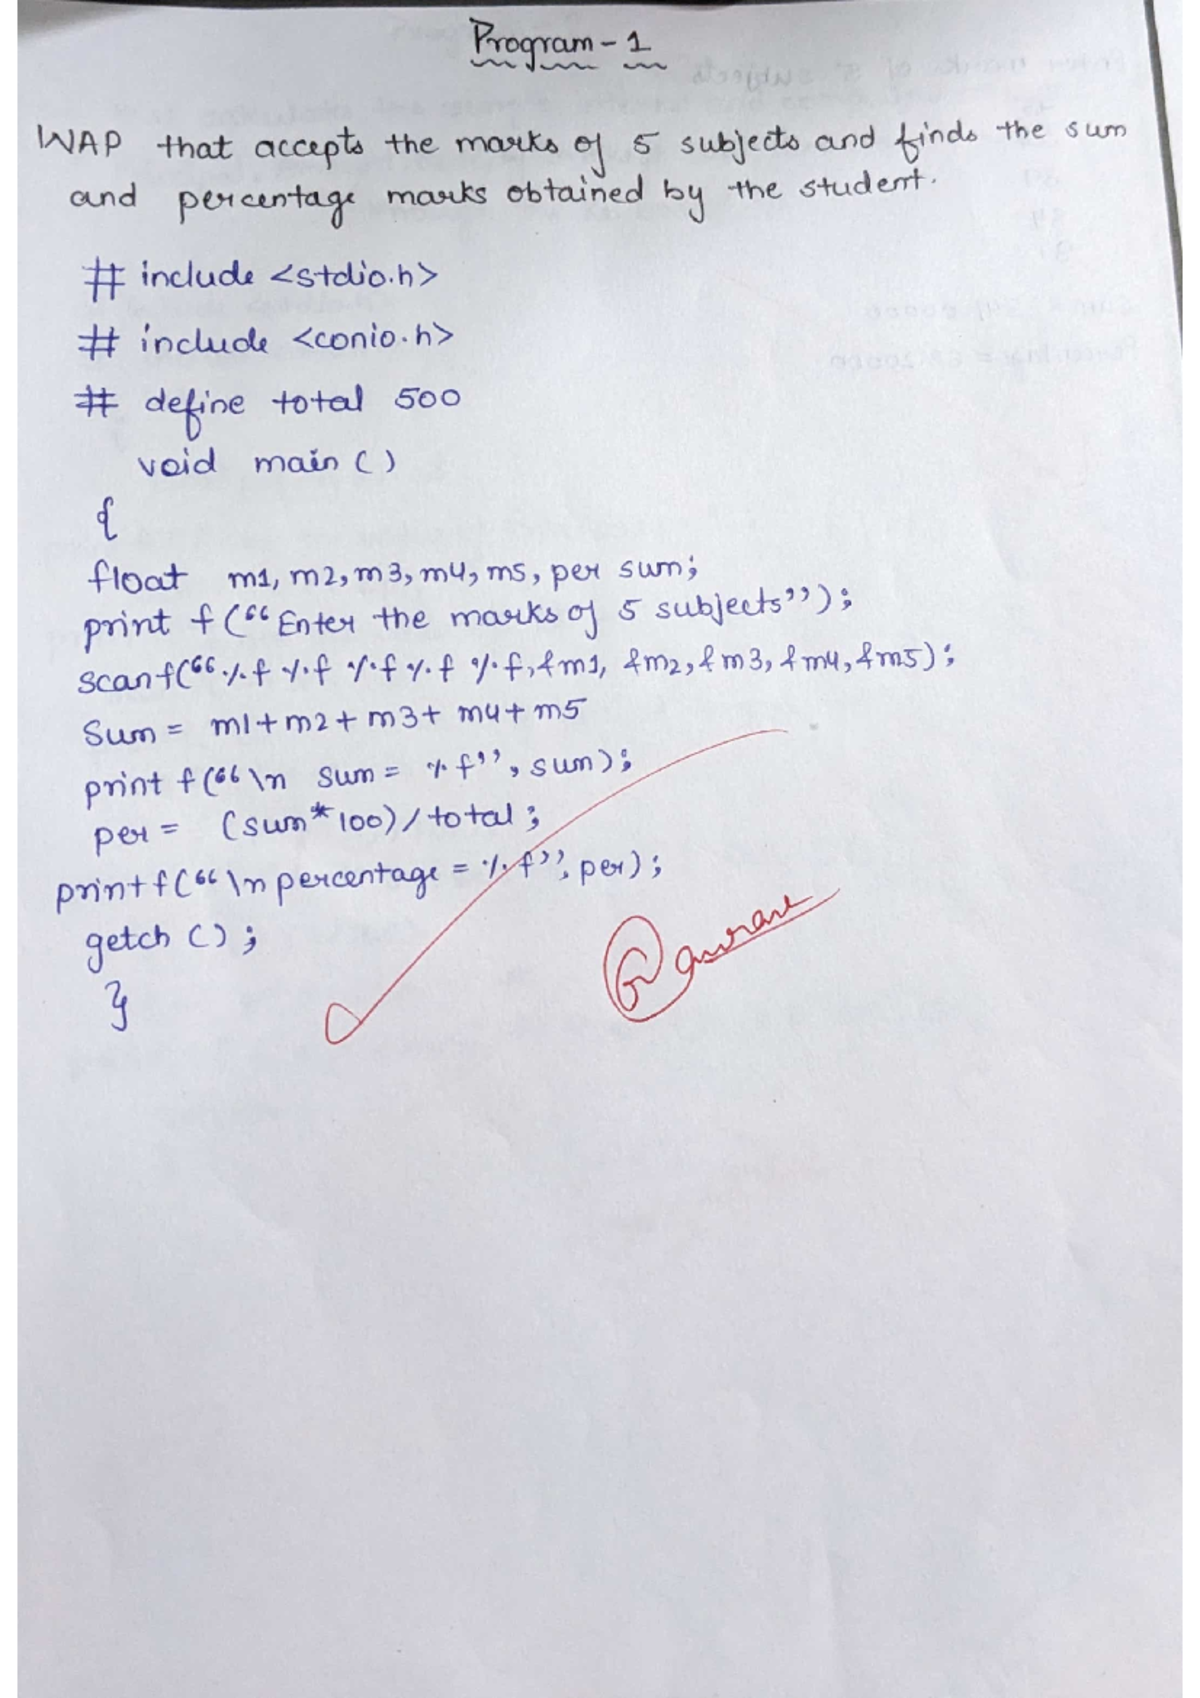 Program - 1
WAP that accepts the marks of 5 subjects and finds the sum
and percentage marks obtained by the student.
# include <stdio.h>
# include <conio.h>
# define total 500
void main ( )
{
float m1, m2, m3, m4, m5, per sum;
print f (“Enter the marks of 5 subjects”);
scanf(“%f %f %f %f %f, &m1, &m2, &m3, &m4, &m5);
Sum = m1+m2+m3+m4+m5
print f (“\n sum = %f”, sum);
per = (sum*100)/total;
printf(“\n percentage = %f”, per);
getch ( );
}